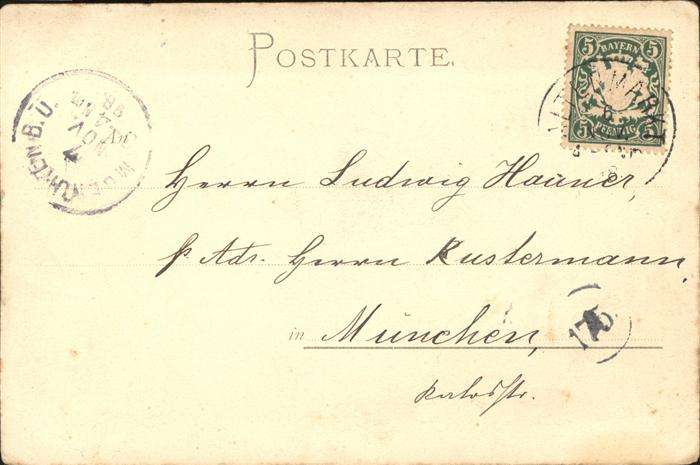 POSTKARTE.
5 BAYERN 5
5 PFENNIG 5
MUENCHEN B.Ü.
7
NOV
98
Herrn Ludwig Hauner,
p Adr. Herrn Kustermann,
in München,
175